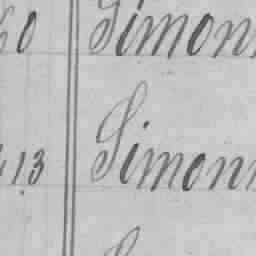 60 Simon
413 Simon